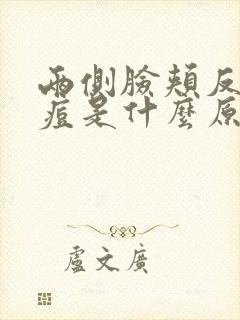 兩側臉頰反
痘是什麼原
盧文廣